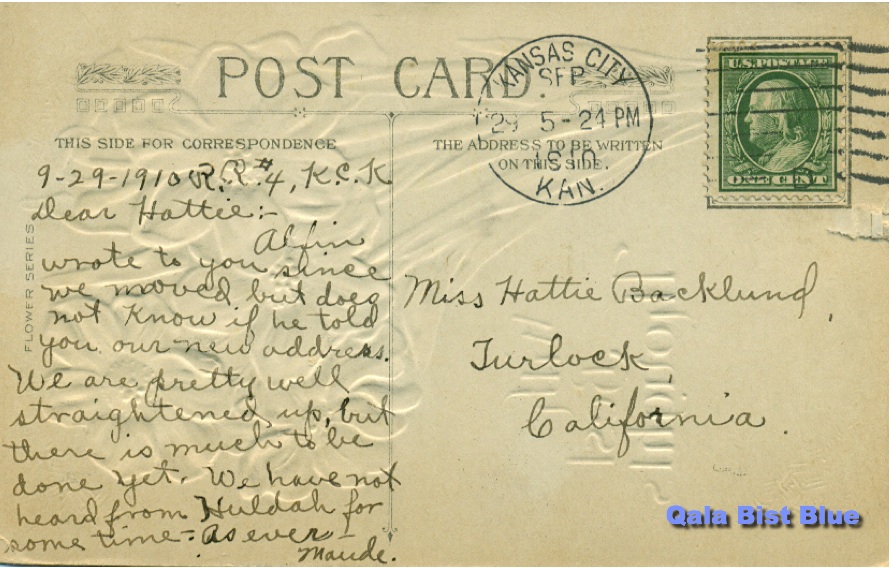 POST CARD.
KANSAS CITY
SEP
29 5-24 PM
1910
KAN.
U.S. POSTAGE
ONE CENT
THIS SIDE FOR CORRESPONDENCE
THE ADDRESS TO BE WRITTEN
ON THIS SIDE.
FLOWER SERIES
9-29-1910 R.R.#4, K.C.K
Dear Hattie:-
Alfin
wrote to you since
we moved, but does
not know if he told
you our new address.
We are pretty well
straightened up, but
there is much to be
done yet. We have not
heard from Huldah for
some time - As ever -
Maude.
Miss Hattie Backlund,
Turlock,
California.
Qala Bist Blue